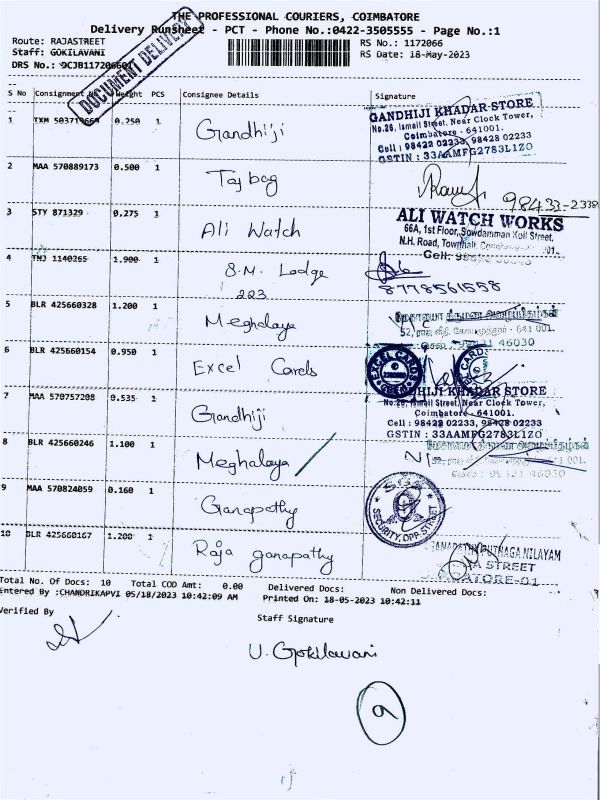 THE PROFESSIONAL COURIERS, COIMBATORE
Delivery Runsheet - PCT - Phone No.:0422-3505555 - Page No.:1
Route: RAJASTREET
RS No.: 1172066
Staff: GOKILAVANI
RS Date: 18-May-2023
DRS No.:
DOCUMENT DELIVERY
S No Consignment Weight PCS Consignee Details Signature
1 TXM 0.250 1 Gandhiji
GANDHIJI KHADAR STORE
No.26, Ismail Street, Near Clock Tower,
Coimbatore - 641001.
Cell : 98422 02233, 98428 02233
GSTIN : 33AAMFG2783L1ZO
2 MAA 570889173 0.500 1 Taj bag
98433-2338
3 STY 871329 0.275 1 Ali Watch
ALI WATCH WORKS
66A, 1st Floor, Sowdamman Koil Street,
N.H. Road, Townhall,
Cell:
4 TNJ 1140265 1.900 1 S.M. Lodge
223
8778561558
5 BLR 425660328 1.200 1 Meghalaya
641 001.
46030
6 BLR 425660154 0.950 1 Excel Cards
EXCEL CARDS
7 MAA 570757208 0.535 1 Gandhiji
KHADAR STORE
No.26, Ismail Street, Near Clock Tower,
Coimbatore - 641001.
Cell : 98422 02233, 98428 02233
GSTIN : 33AAMFG2783L1ZO
8 BLR 425660246 1.100 1 Meghalaya
9 MAA 570824059 0.160 1 Ganapathy
10 BLR 425660167 1.200 1 Raja ganapathy
STREET
Total No. Of Docs: 10 Total COD Amt: 0.00 Delivered Docs: Non Delivered Docs:
Entered By :CHANDRIKAPVI 05/18/2023 10:42:09 AM Printed On: 18-05-2023 10:42:11
Verified By
Staff Signature
U. Gokilavani
9